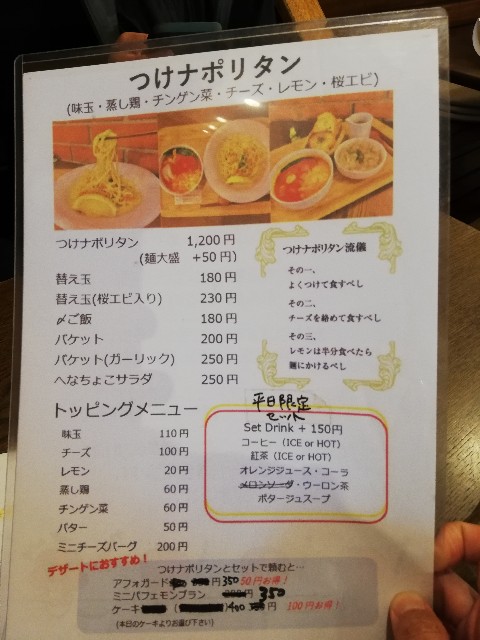 つけナポリタン
(味玉・蒸し鶏・チンゲン菜・チーズ・レモン・桜エビ)
つけナポリタン 1,200円
(麺大盛 +50円)
替え玉 180円
替え玉(桜エビ入り) 230円
〆ご飯 180円
バケット 200円
バケット(ガーリック) 250円
へなちょこサラダ 250円
つけナポリタン流儀
その一、
よくつけて食すべし
その二、
チーズを絡めて食すべし
その三、
レモンは半分食べたら
麺にかけるべし
トッピングメニュー
味玉 110円
チーズ 100円
レモン 20円
蒸し鶏 60円
チンゲン菜 60円
バター 50円
ミニチーズバーグ 200円
平日限定
セット
Set Drink + 150円
コーヒー(ICE or HOT)
紅茶(ICE or HOT)
オレンジジュース・コーラ
メロンソーダ・ウーロン茶
ポタージュスープ
デザートにおすすめ!
つけナポリタンとセットで頼むと…
アフォガード 円350 50円お得!
ミニパフェモンブラン 350
ケーキ ( )400 円 100円お得!
(本日のケーキよりお選び下さい)